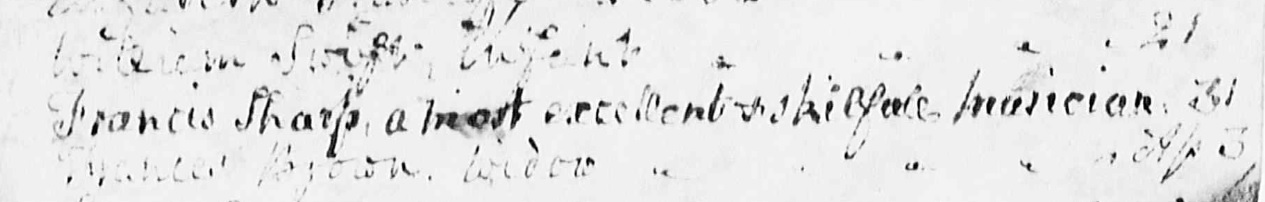 William Swift, Infant " " " " 21
Francis Sharp, a most excellent & skilfull musician. 31
Frances Brown. Widow " " " " Ap 3